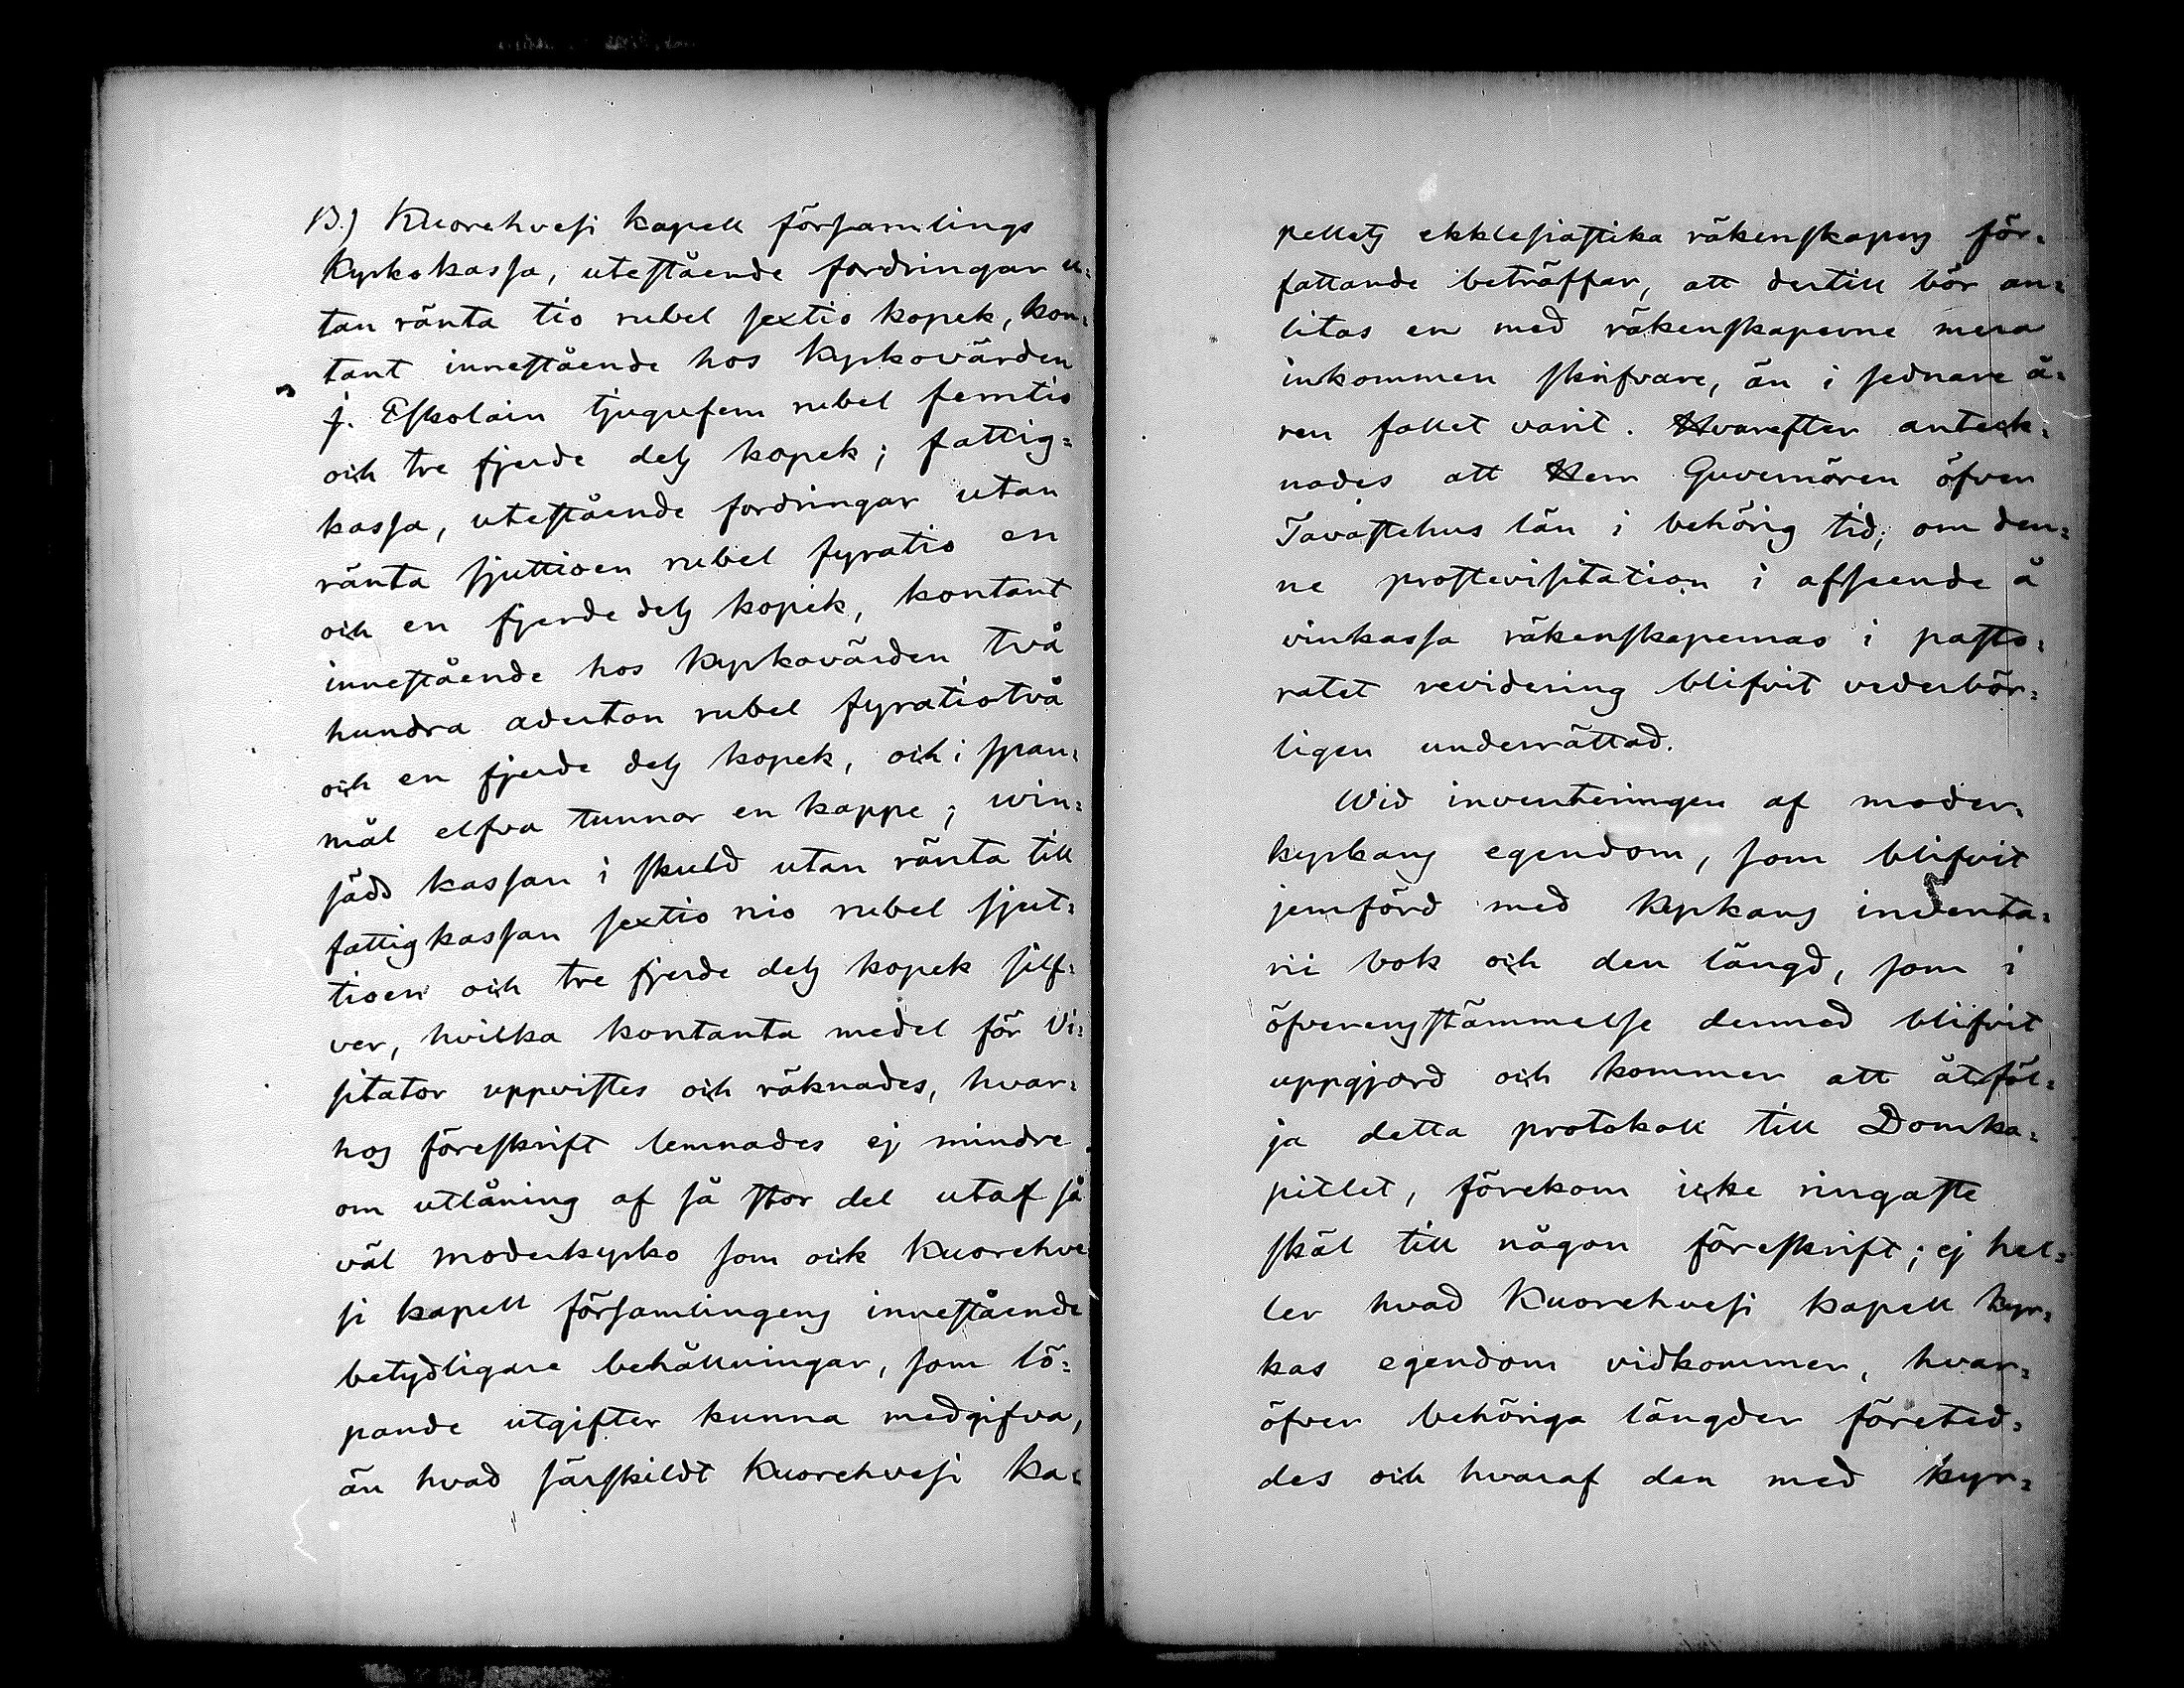 B.) Kuorehvesi kapell församlings
Kyrkokassa, utestående fordringar u=
tan ränta tio rubel sextio kopek, kon=
tant innestående hos Kyrkovärden
J. Eskolain tjugufem rubel femtio
och tre fjerde dels kopek; fattig=
kassa, utestående fordringar utan
ränta sjuttioen rubel fyratio en
och en fjerde dels kopek, kontant
innestående hos Kyrkovärden två
hundra aderton rubel fyratiotvå
och en fjerde dels kopek, och i span=
mål elfva tunnor en kappe; win=
sädd kassan i skuld utan ränta till
fattigkassan sextio nio rubel sjut=
tioen och tre fjerde dels kopek silf=
ver, hvilka kontanta medel för Vi=
sitator uppvistes och räknades, hvar=
hos föreskrift lemnades ej mindre
om utlåning af så stor del utaf så
väl moderkyrko som ock Kuorehve
si kapell församlingens innestående
betydligare behållningar, som lö=
pande utgifter kunna medgifva,
än hvad särskildt Kuorehvesi Ka=
pellets ekklesiastika räkenskapers för=
fattande beträffar, att dertill bör an=
litas en med räkenskaperne mera
inkommen skrifvare, än i sednare å=
ren fallet varit. Hvarefter anteck=
nades att Herr Guvernören öfver
Tavastehus län i behörig tid, om den=
ne prostevisitation i afseende å
vinkassa räkenskapernas i pasto=
ratet revidering blifvit vederbör=
ligen underrättad.
Wid inventeringen af moder=
kyrkans egendom, som blifvit
jemförd med Kyrkans inventa=
rii bok och den längd, som i
öfverensstämmelse dermed blifvit
uppgjord och kommer att åtföl=
ja detta protokoll till Domka=
pitlet, förekom icke ringaste
skäl till någon föreskrift; ej hel=
ler hvad Kuorehvesi kapell kyr=
kas egendom vidkommer, hvar=
öfver behöriga längder företed=
des och hvaraf den med kyr=